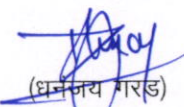 (धनंजय गराड)